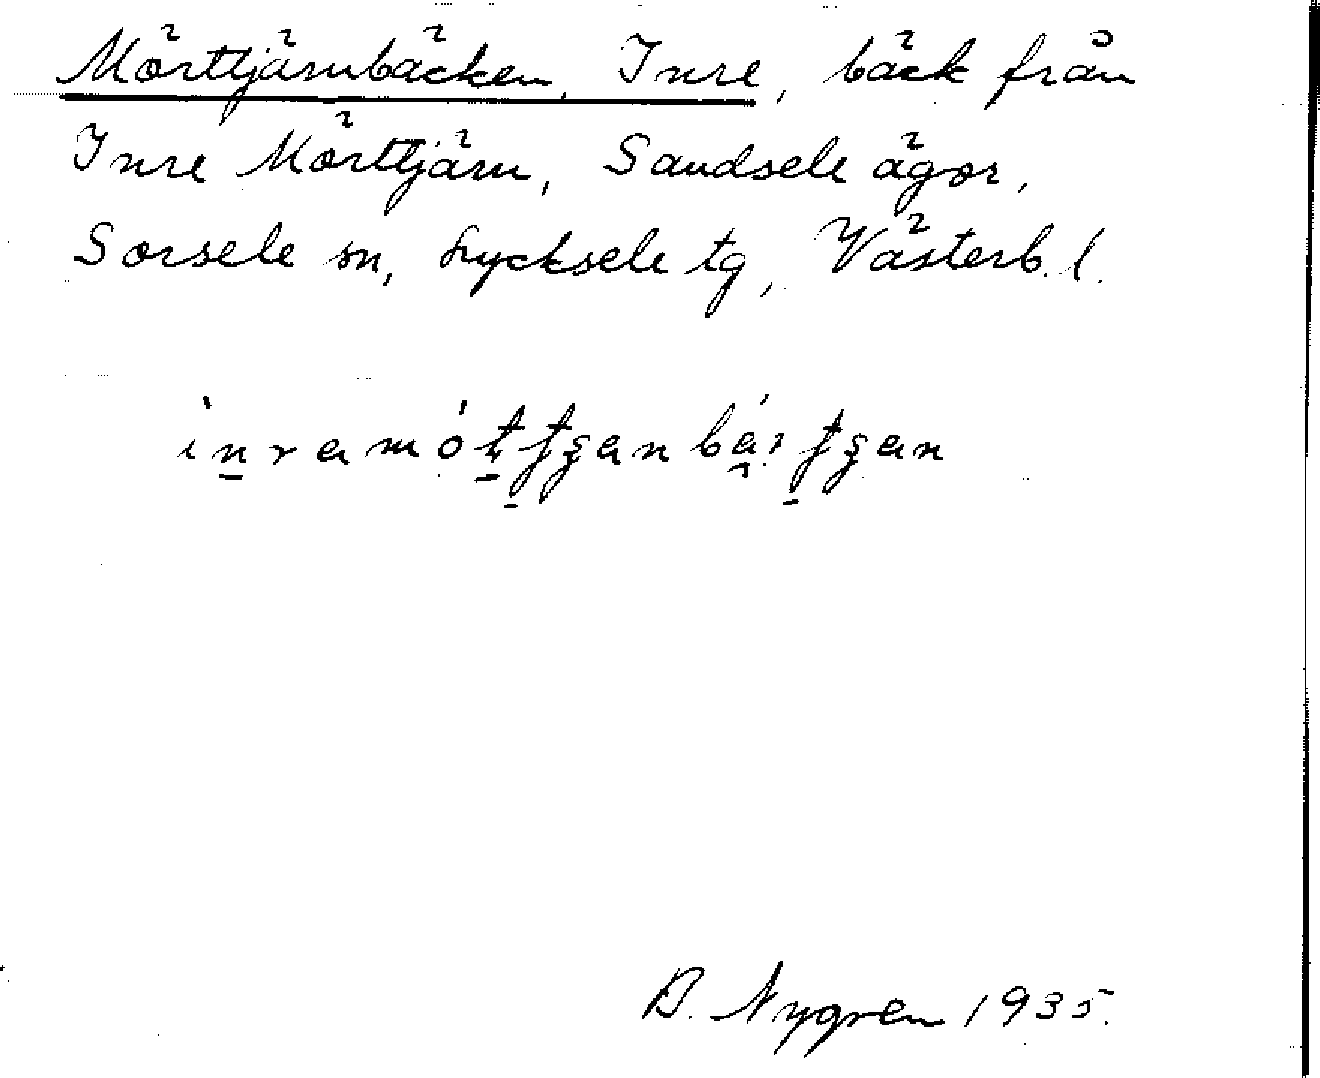 Mörttjärnbäcken, Inre, bäck från
Inre Mörttjärn, Sandsele ägor,
Sorsele sn, Lycksele tg, Västerb. l.
Nygren 1935.